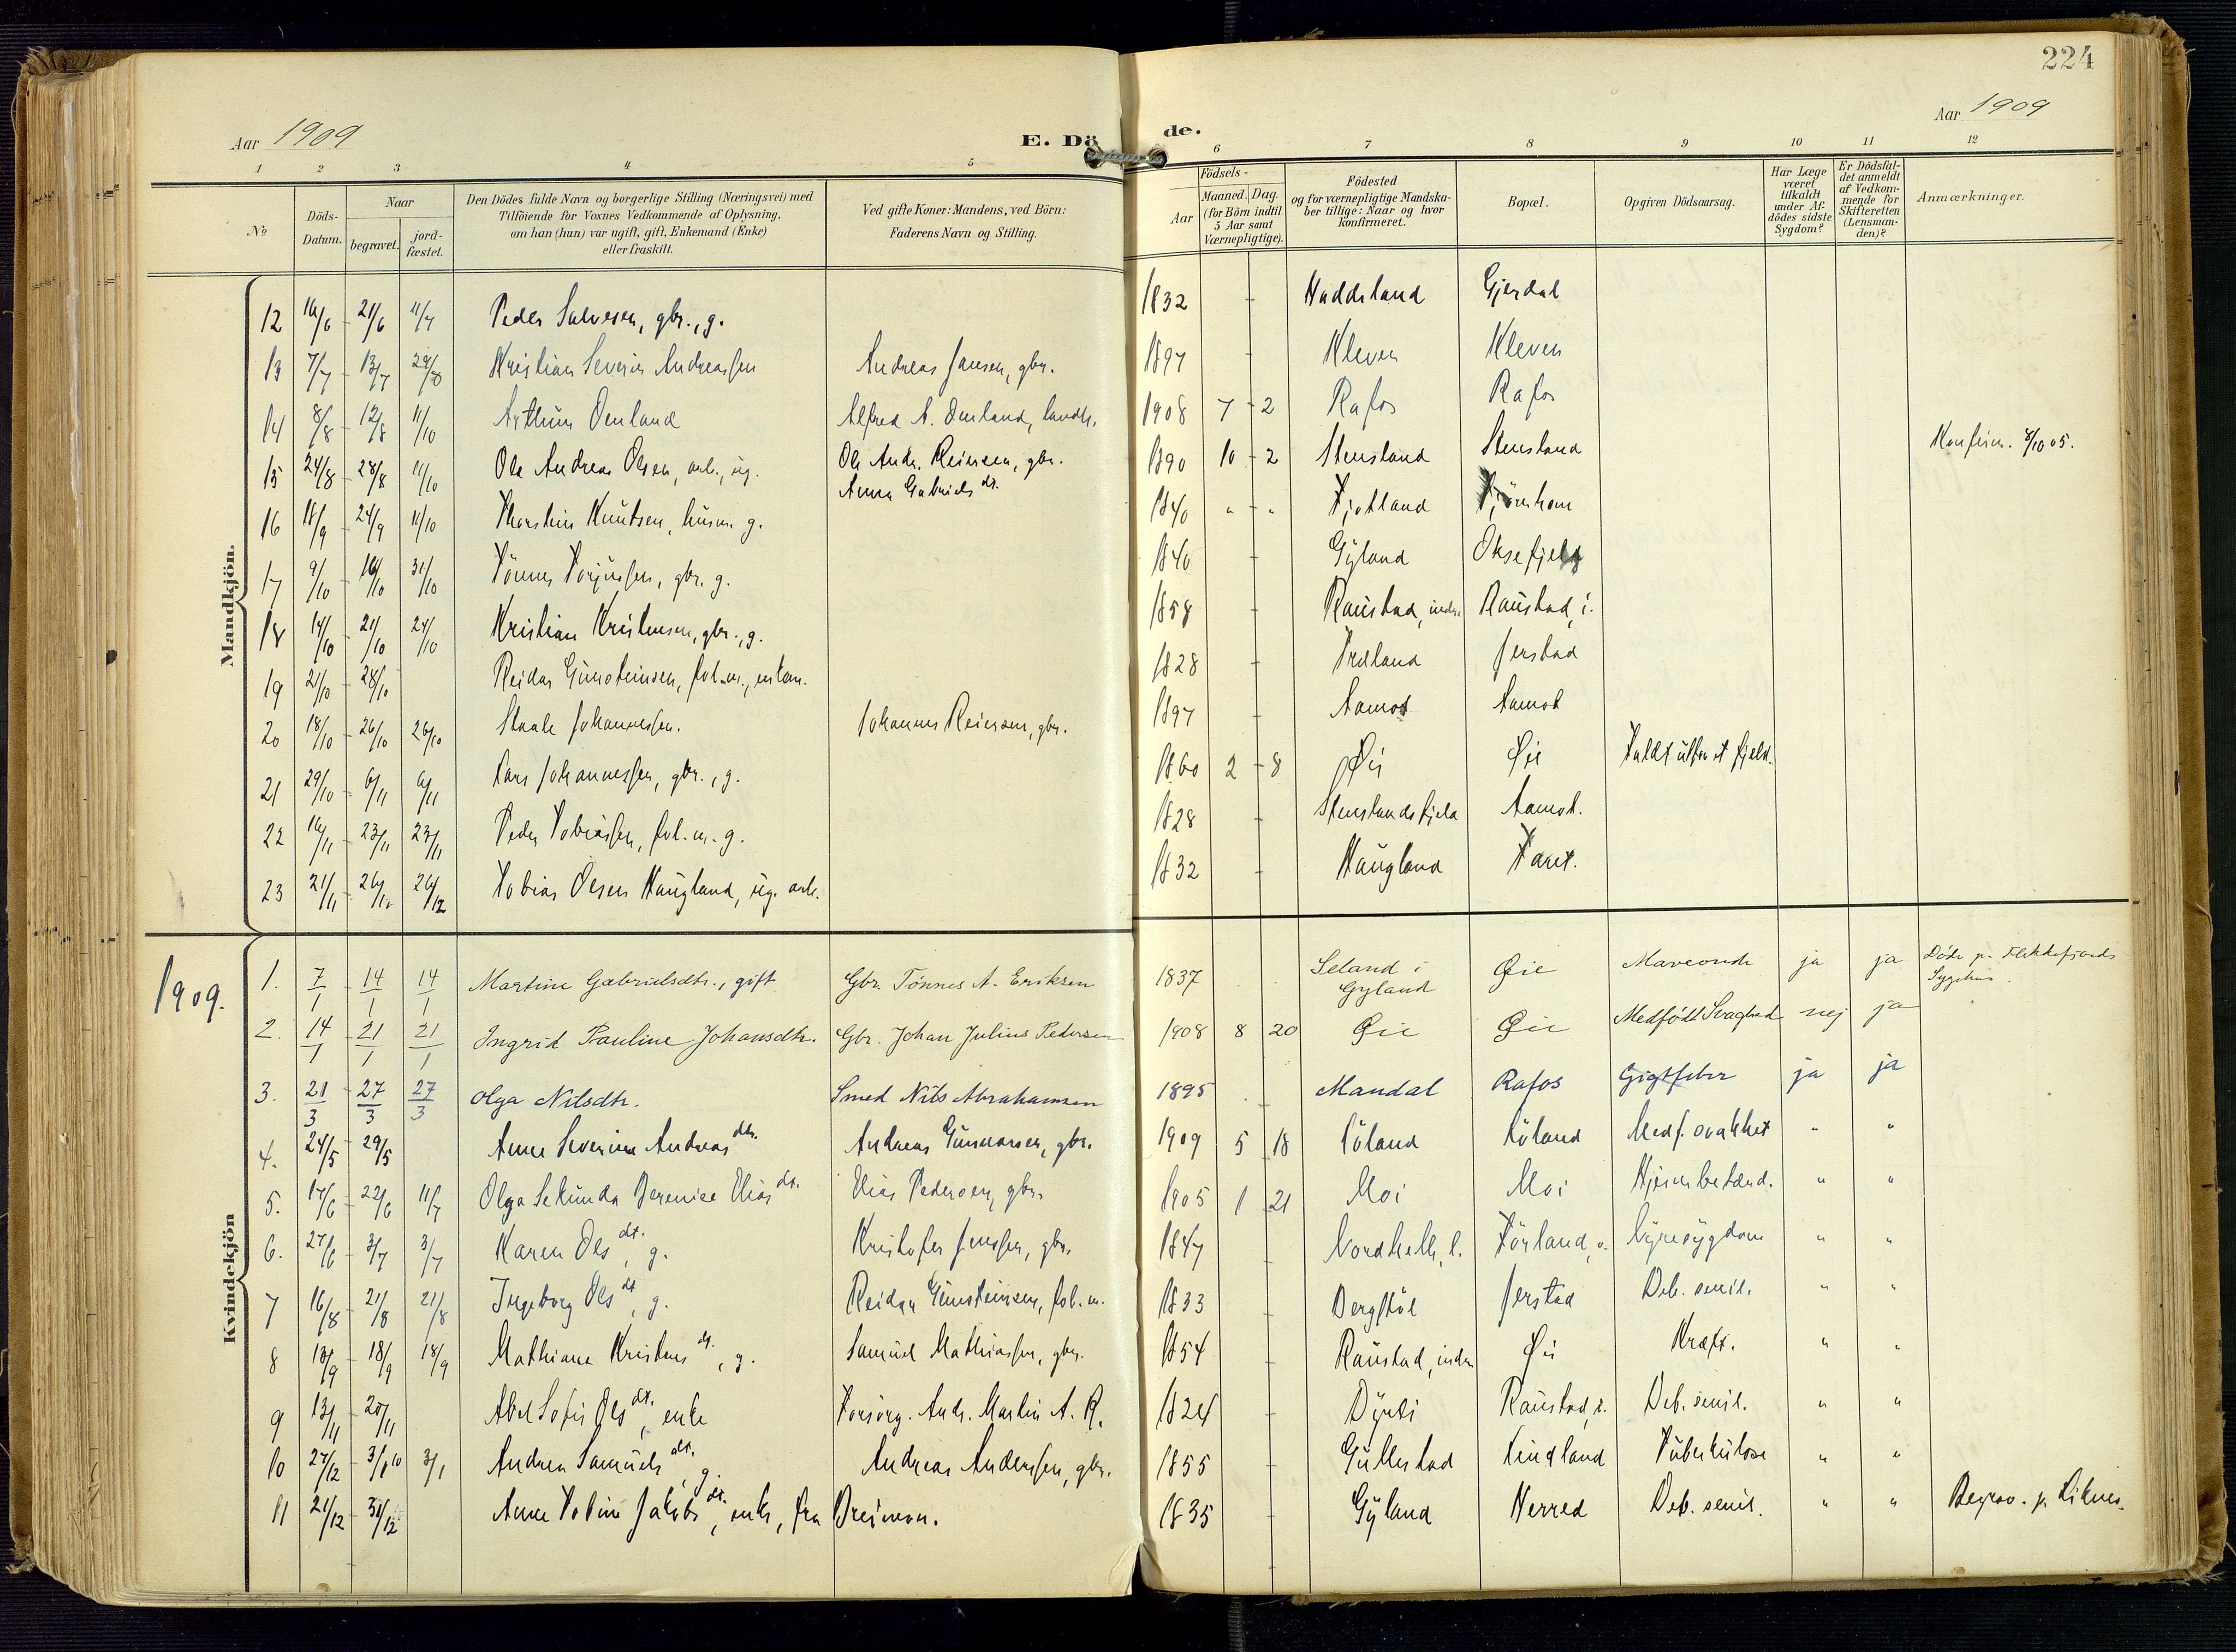 224
Aar 1909
E. Dö
de.
Aar 1909
1 2 3 4 5 6 7 8 9 10 11 12
No
Döds-Datum.
Naar
begravet.
jord-fæstet.
Den Dödes fulde Navn og borgerlige Stilling (Næringsvei) med
Tilföiende for Voxnes Vedkommende af Oplysning,
om han (hun) var ugift, gift, Enkemand (Enke)
eller fraskilt.
Ved gifte Koner: Mandens, ved Börn:
Faderens Navn og Stilling.
Födsels-
Aar
Maaned. Dag.
(for Börn indtil
5 Aar samt
Værnepligtige).
Födested
og for værnepligtige Mandska-
ber tillige: Naar og hvor
konfirmeret.
Bopæl.
Opgiven Dödsaarsag.
Har Læge
været
tilkaldt
under Af-
dödes sidste
Sygdom?
Er Dödsfal-
det anmeldt
af Vedkom-
mende for
Skifteretten
(Lensman-
den)?
Anmærkninger.
Mandkjön.
12 16/6 21/6 11/7 Peder Salvesen, gbr., g. 1832 Haddeland Gjerdal
13 7/7 13/7 29/8 Kristian Severin Andreassen Andreas Jansen, gbr. 1897 Kleven Kleven
14 8/8 12/8 11/10 Arthur Omland Alfred A. Omland, landh. 1908 7 2 Rafos Rafos
15 24/8 28/8 11/10 Ole Andreas Olsen, arb., ug. Ole Andr. Reiersen, gbr. 1890 10 2 Stensland Stensland Konfirm. 8/10 05.
Anna Gabriels dt.
16 18/9 24/9 11/10 Thorstein Knutsen, husm. g. 1840 " " Fjotland
17 9/10 16/10 31/10 Tönnes Torjussen, gbr. g. 1840 Gyland Oksefjeld
18 14/10 21/10 24/10 Kristian Kristensen, gbr., g. 1858 Raustad, indre Raustad, i.
19 21/10 28/10 Reidar Gunsteinsen, fol.m., enkem. 1828 Jerstad
20 18/10 26/10 26/10 Staale Johannessen. Johannes Reiersen, gbr. 1897 Aamot Aamot
21 29/10 6/11 6/11 Lars Johannessen, gbr., g. 1860 2 8 Øie Øie Faldt utfor et fjeld.
22 16/11 23/11 23/11 Peder Tobiassen, fol.m. g. 1828 Stenslandsfjeld Aamot.
23 21/11 26/11 26/12 Tobias Olsen Haugland, ug. arb. 1832 Haugland
1909.
Kvindekjön
1. 7/1 14/1 14/1 Martine Gabrielsdtr., gift Gbr. Tönnes A. Eriksen 1837 Seland i Gyland Øie Maveonde ja ja Döde p. Flekkefjords Sygehus
2. 14/1 21/1 21/1 Ingrid Pauline Johansdtr. Gbr. Johan Julius Pedersen 1908 8 20 Øie Øie Medfödt Svaghed nej ja
3. 21/3 27/3 27/3 Olga Nilsdtr. Smed Nils Abrahamsen 1895 Mandal Rafos Gigtfeber ja ja
4. 24/5 29/5 Anne Severine Andreas dtr. Andreas Gunnarsen, gbr. 1909 5 18 Löland Löland Medf. svakhet " "
5. 17/6 22/6 11/7 Olga Sekunda Berenice Elias dt. Elias Pedersen, gbr. 1905 1 21 Moi Moi Hjernebetænd. " "
6. 27/6 3/7 3/7 Karen Ols dt., g. Kristofer Jenssen, gbr. 1847 Nordhelle, l. Nyresygdom " "
7 16/8 21/8 21/8 Ingeborg Ols dt., g. Reidar Gunsteinsen, fol.m. 1833 Bergstöl Jerstad Deb. senil. " "
8 13/9 18/9 18/9 Mathiane Kristens dt., g. Samuel Mathiassen, gbr. 1854 Raustad, indre Øie Kræft. " "
9 13/11 20/11 Abel Sofie Ols dt., enke Forsörg. Andr. Martin A. R. 1824 Dyrli Raustad, i. Deb. senil. " "
10 27/12 3/1 10 3/1 Andrea Samuels dt., g. Andreas Anderssen, gbr. 1855 Gullestad Lindland Tuberkulose " "
11 21/12 31/12 Anne Tobine Jakobs dt., enke, fra Breimon. 1835 Gyland Herred Deb. senil. " " Begrav. p. Liknes.